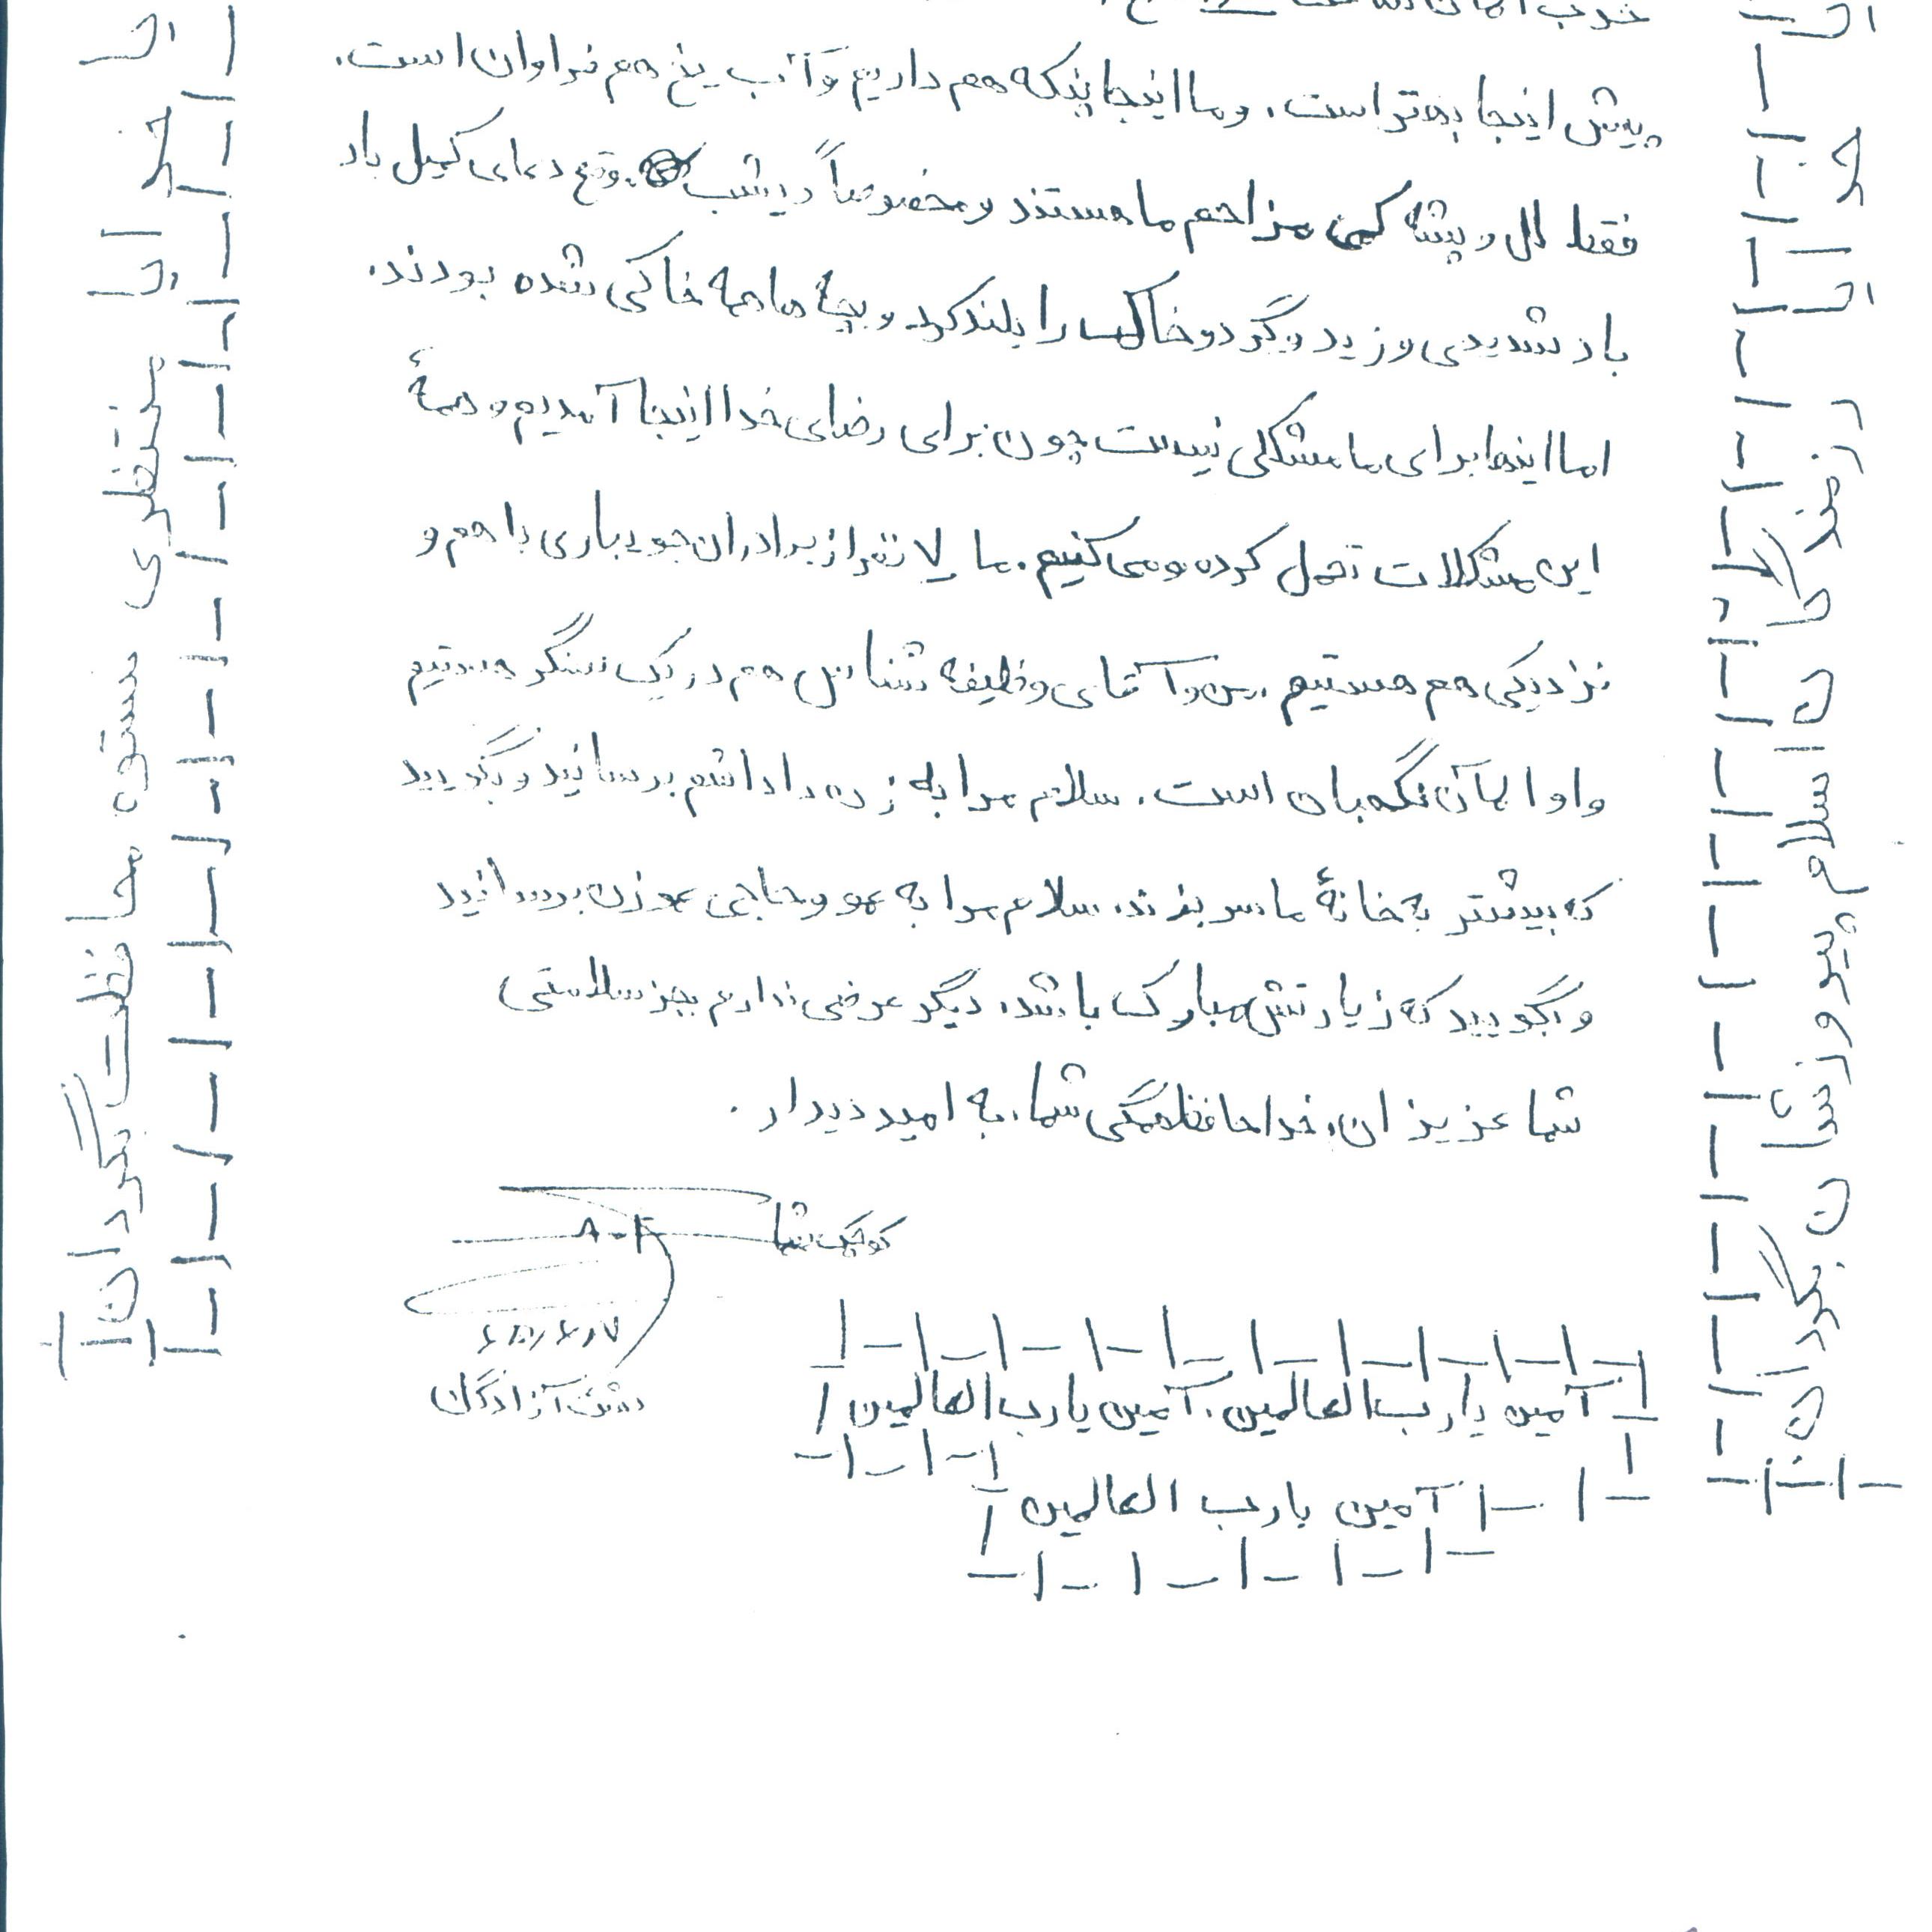 پیش اینجا بهتر است. و ما اینجا پنکه هم داریم و آب یخ هم فراوان است.
فقط ال و پشه کمی مزاحم ما هستند و مخصوصاً دیشب موقع دعای کمیل باد
باد شدیدی وزید و گرد و خاک را بلند کرد و بچه ها همه خاکی شده بودند.
اما اینها برای ما مشکلی نیست چون برای رضای خدا اینجا آمدیم و همۀ
این مشکلات تحمل کرده و می کنیم. ما نفر از برادران جویباری با هم و
نزدیکی هم هستیم. من و آقای وظیفه شناس هم در یک سنگر هستیم
و او الآن نگهبان است. سلام مرا به زن داداشم برسانید و بگویید
که بیشتر به خانۀ ما سر بزند. سلام مرا به عمو و حاجی عمو زن برسانید
و بگویید که زیارتش مبارک باشد. دیگر عرضی ندارم بجز سلامتی
شما عزیزان. خداحافظ همگی شما. به امید دیدار.
کوچک شما
دشت آزادگان
آمین یا رب العالمین. آمین یا رب العالمین
آمین یا رب العالمین
اسلام پیروزشان بگردان
منتظری محافظت بگردان